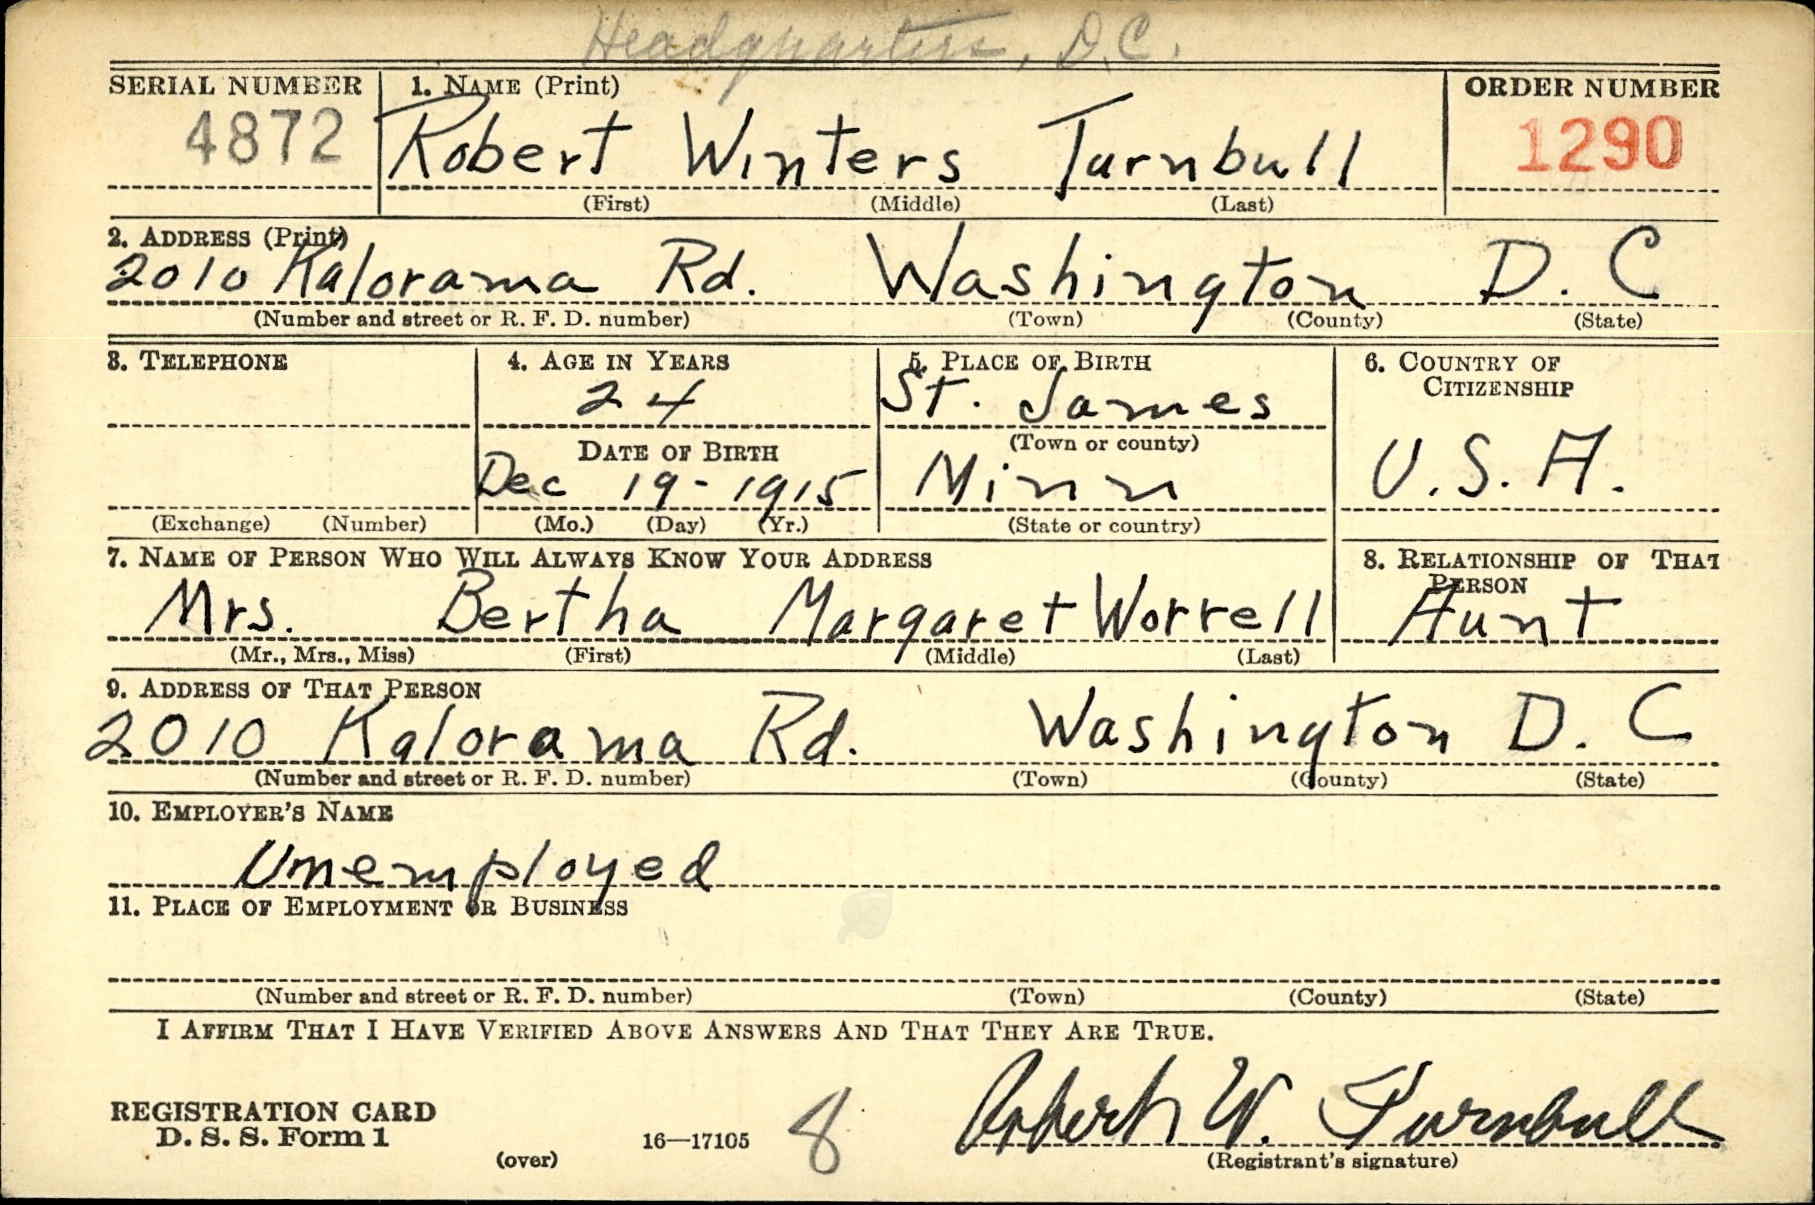 Headquarters, D.C.
SERIAL NUMBER 1. NAME (Print) ORDER NUMBER
4872 Robert Winters Turnbull 1290
(First) (Middle) (Last)
2. ADDRESS (Print)
2010 Kalorama Rd. Washington D. C
(Number and street or R. F. D. number) (Town) (County) (State)
3. TELEPHONE 4. AGE IN YEARS 5. PLACE OF BIRTH 6. COUNTRY OF
CITIZENSHIP
24 St. James
DATE OF BIRTH (Town or county)
Dec 19-1915 Minn U.S.A.
(Exchange) (Number) (Mo.) (Day) (Yr.) (State or country)
7. NAME OF PERSON WHO WILL ALWAYS KNOW YOUR ADDRESS 8. RELATIONSHIP OF THAT
PERSON
Mrs. Bertha Margaret Worrell Aunt
(Mr., Mrs., Miss) (First) (Middle) (Last)
9. ADDRESS OF THAT PERSON
2010 Kalorama Rd. Washington D. C
(Number and street or R. F. D. number) (Town) (County) (State)
10. EMPLOYER'S NAME
Unemployed
11. PLACE OF EMPLOYMENT OR BUSINESS
(Number and street or R. F. D. number) (Town) (County) (State)
I AFFIRM THAT I HAVE VERIFIED ABOVE ANSWERS AND THAT THEY ARE TRUE.
REGISTRATION CARD
D. S. S. Form 1 16—17105 8 Robert W. Turnbull
(over) (Registrant's signature)